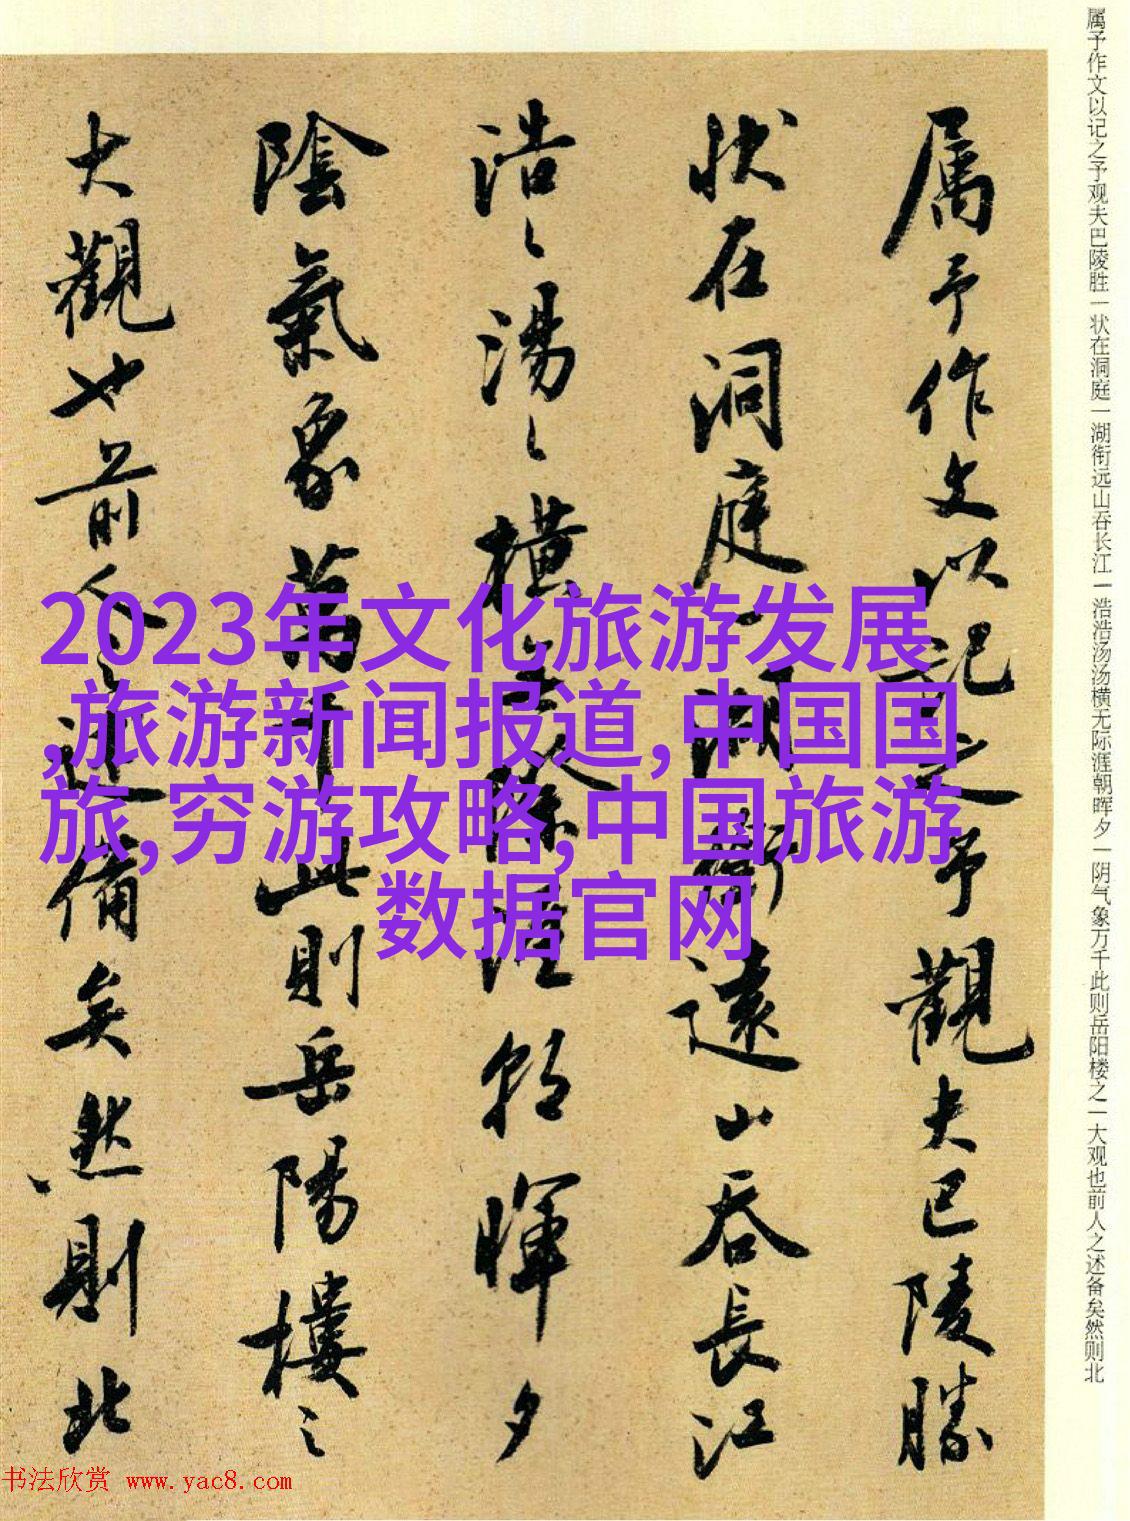 属予作文以记之予观夫巴陵胜一状在洞庭一湖衔远山吞长江一浩浩汤汤横无际涯朝晖夕一阴气象万千此则岳阳楼之一大观也前人之述备矣然则北
属予作文以记之予觀夫巴陵勝
状在洞庭一湖銜遠山吞長江
浩〻湯〻橫無際涯朝暉夕
陰氣象萬千此則岳陽樓之
大觀也前人之述備矣然則北
2023年文化旅游发展
,旅游新闻报道,中国国
旅,穷游攻略,中国旅游
数据官网
书法欣赏 www.yac8.com